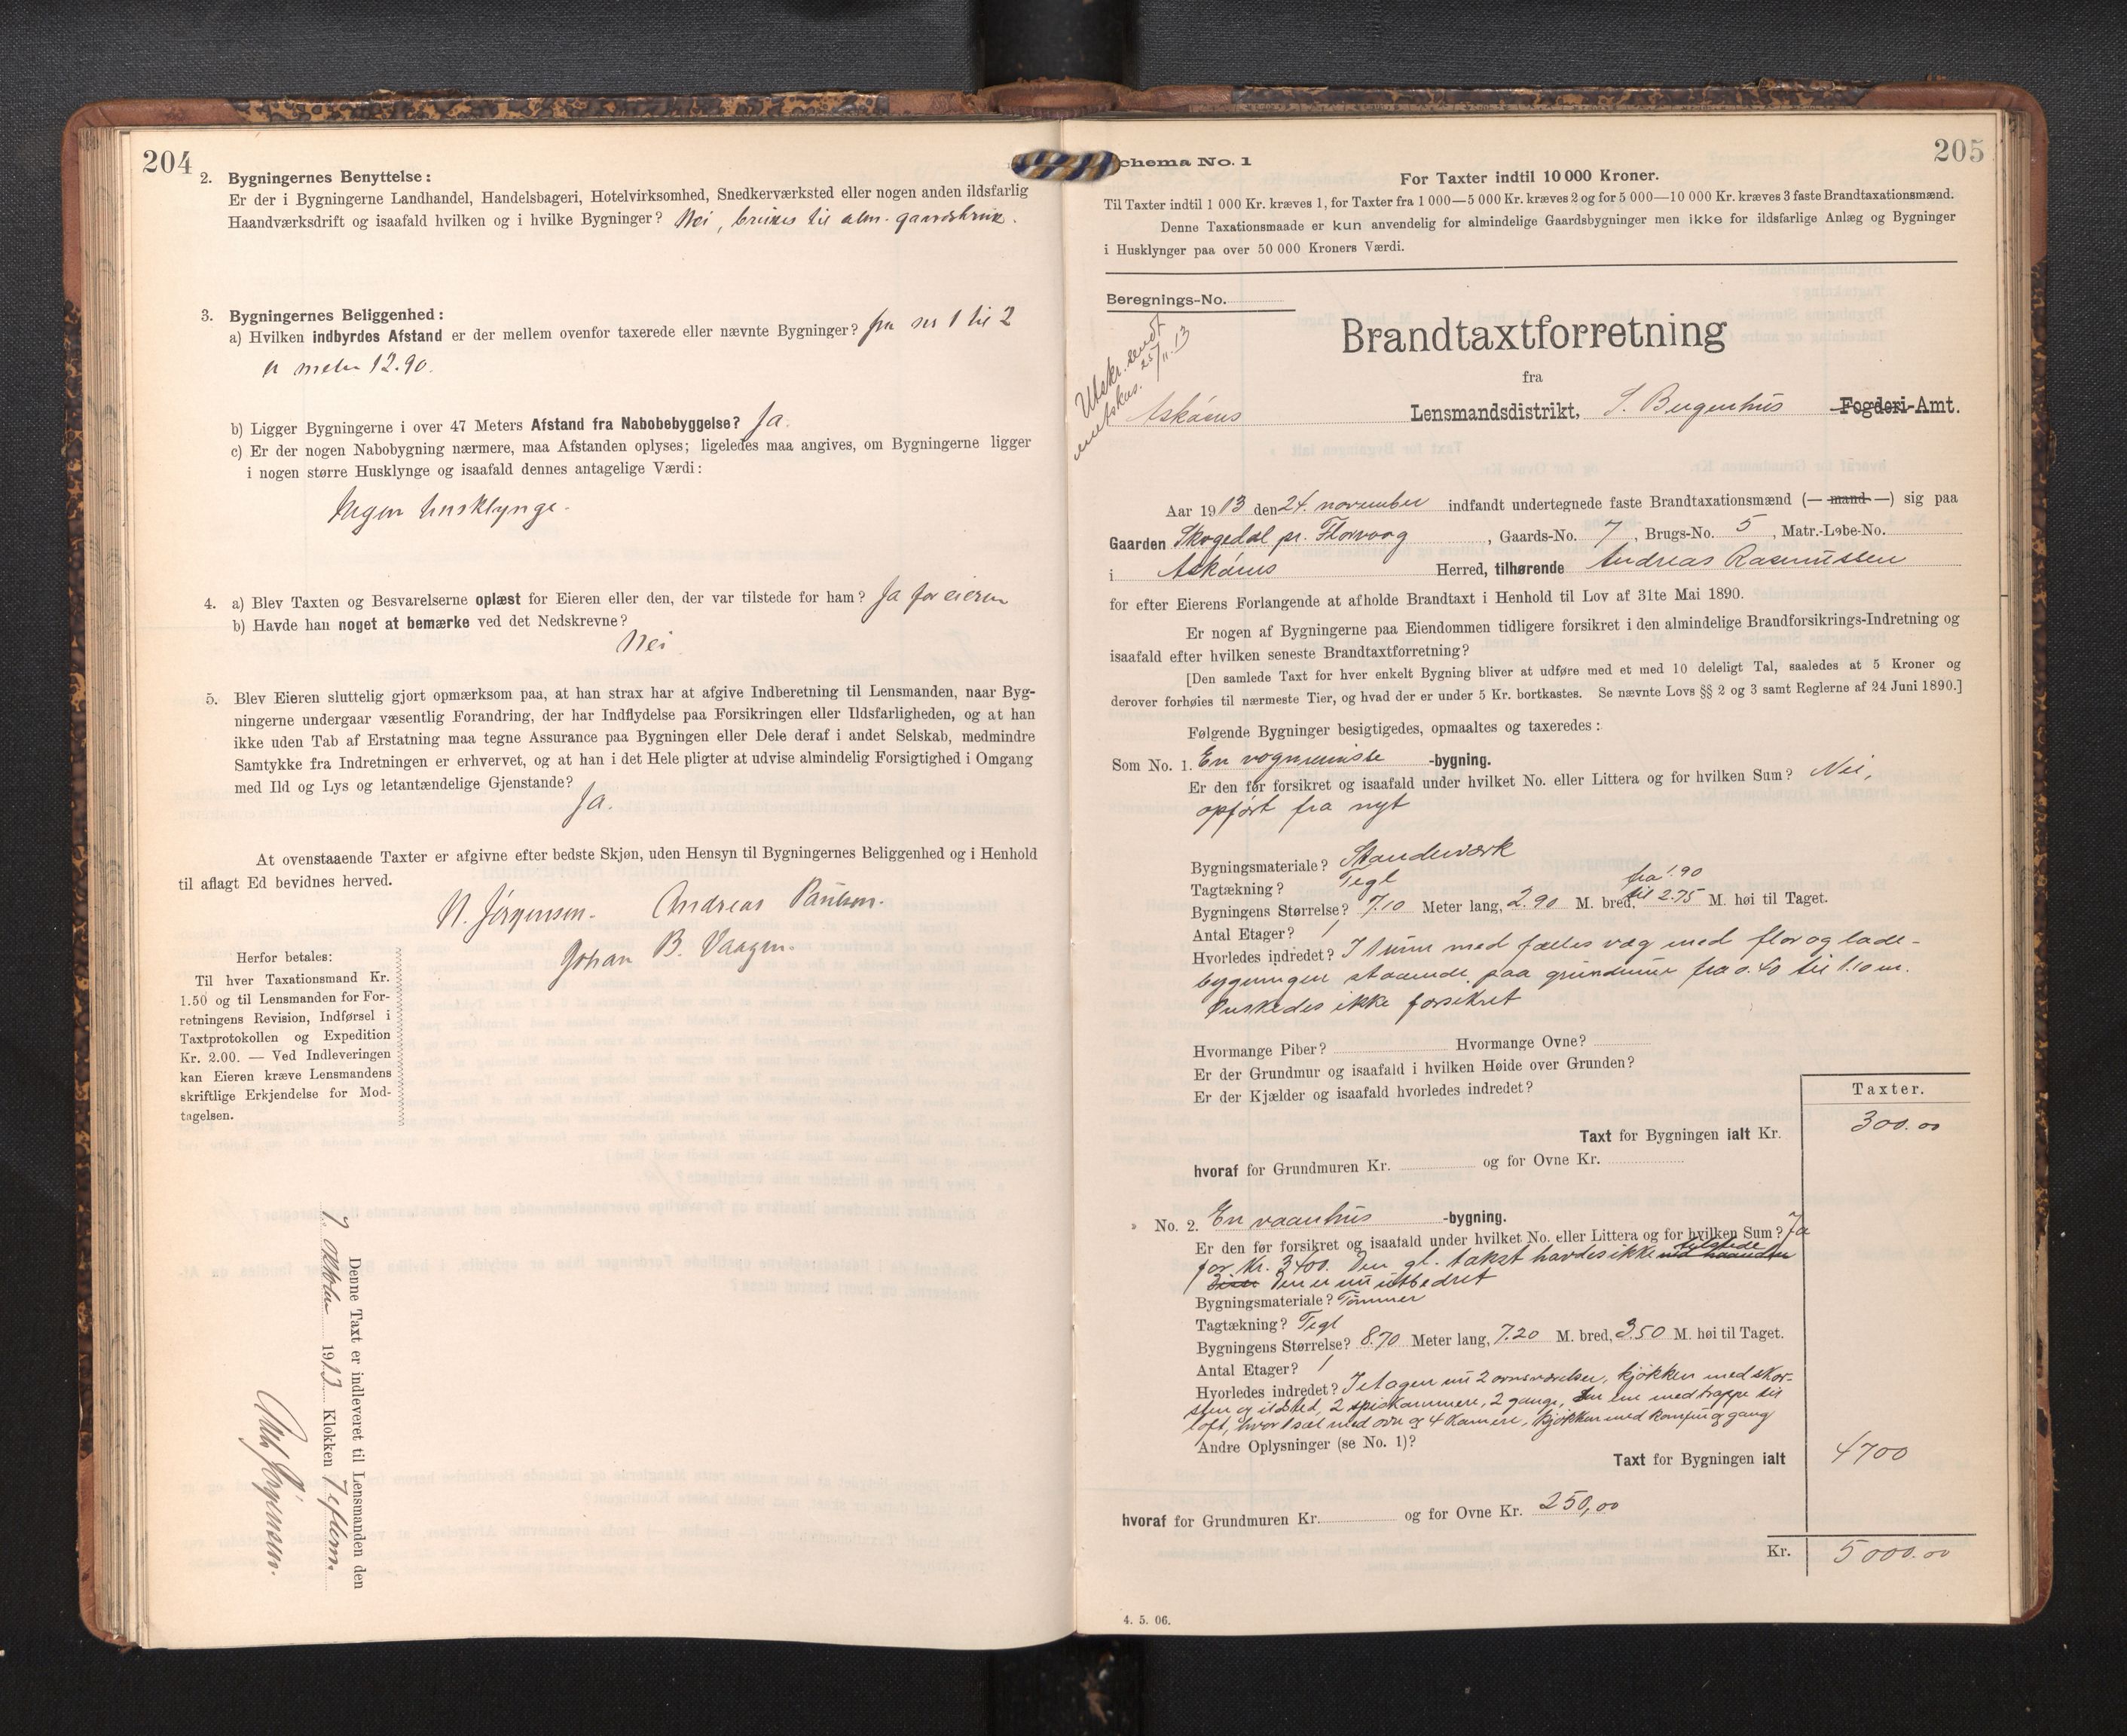 204
2. Bygningernes Benyttelse:
Er der i Bygningerne Landhandel, Handelsbageri, Hotelvirksomhed, Snedkerværksted eller nogen anden ildsfarlig
Haandværksdrift og isaafald hvilken og i hvilke Bygninger? Nei, bruges til alm. gaardsbruk.
3. Bygningernes Beliggenhed:
a) Hvilken indbyrdes Afstand er der mellem ovenfor taxerede eller nævnte Bygninger? fra no 1 til 2
er meter 12.90.
b) Ligger Bygningerne i over 47 Meters Afstand fra Nabobebyggelse? Ja.
c) Er der nogen Nabobygning nærmere, maa Afstanden oplyses; ligeledes maa angives, om Bygningerne ligger
i nogen større Husklynge og isaafald dennes antagelige Værdi:
Ingen husklynge.
4. a) Blev Taxten og Besvarelserne oplæst for Eieren eller den, der var tilstede for ham? Ja for eieren
b) Havde han noget at bemærke ved det Nedskrevne?
Nei
5. Blev Eieren sluttelig gjort opmærksom paa, at han strax har at afgive Indberetning til Lensmanden, naar Byg-
ningerne undergaar væsentlig Forandring, der har Indflydelse paa Forsikringen eller Ildsfarligheden, og at han
ikke uden Tab af Erstatning maa tegne Assurance paa Bygningen eller Dele deraf i andet Selskab, medmindre
Samtykke fra Indretningen er erhvervet, og at han i det Hele pligter at udvise almindelig Forsigtighed i Omgang
med Ild og Lys og letantændelige Gjenstande?
Ja.
At ovenstaaende Taxter er afgivne efter bedste Skjøn, uden Hensyn til Bygningernes Beliggenhed og i Henhold
til aflagt Ed bevidnes herved.
N. Jørgensen. Andreas Paulsen.
Johan B. Vaagen.
Herfor betales:
Til hver Taxationsmand Kr.
1.50 og til Lensmanden for For-
retningens Revision, Indførsel i
Taxtprotokollen og Expedition
Kr. 2.00. — Ved Indleveringen
kan Eieren kræve Lensmandens
skriftlige Erkjendelse for Mod-
tagelsen.
Denne Taxt er indleveret til Lensmanden den
7 oktober 1913 Klokken 7 efterm.
Jørgensen.
205
Schema No. 1
For Taxter indtil 10 000 Kroner.
Til Taxter indtil 1 000 Kr. kræves 1, for Taxter fra 1 000—5 000 Kr. kræves 2 og for 5 000—10 000 Kr. kræves 3 faste Brandtaxationsmænd.
Denne Taxationsmaade er kun anvendelig for almindelige Gaardsbygninger men ikke for ildsfarlige Anlæg og Bygninger
i Husklynger paa over 50 000 Kroners Værdi.
Beregnings-No.
Utskr. sendt
25/11.13
Brandtaxtforretning
fra
Askøens Lensmandsdistrikt, S. Bergenhus Fogderi-Amt.
Aar 1913 den 24. november indfandt undertegnede faste Brandtaxationsmænd (— mand —) sig paa
Gaarden Skogedal pr. Florvaag, Gaards-No. 7, Brugs-No. 5, Matr.-Løbe-No.
i Askøens Herred, tilhørende Andreas Rasmussen
for efter Eierens Forlangende at afholde Brandtaxt i Henhold til Lov af 31te Mai 1890.
Er nogen af Bygningerne paa Eiendommen tidligere forsikret i den almindelige Brandforsikrings-Indretning og
isaafald efter hvilken seneste Brandtaxtforretning?
[Den samlede Taxt for hver enkelt Bygning bliver at udføre med et med 10 deleligt Tal, saaledes at 5 Kroner og
derover forhøies til nærmeste Tier, og hvad der er under 5 Kr. bortkastes. Se nævnte Lovs §§ 2 og 3 samt Reglerne af 24 Juni 1890.]
Følgende Bygninger besigtigedes, opmaaltes og taxeredes:
Som No. 1. En vognremisse -bygning.
Er den før forsikret og isaafald under hvilket No. eller Littera og for hvilken Sum? Nei,
opført fra nyt
Bygningsmateriale? Standeværk
Tagtækning? Tegl
Bygningens Størrelse? 7.10 Meter lang, 2.90 M. bred, fra 1.90 til 2.75 M. høi til Taget.
Antal Etager? 1
Hvorledes indredet? I 1 rum med fælles væg med flor og lade-
bygningen staaende paa grundmur fra 0.40 til 1.10 m.
Ønskedes ikke forsikret
Hvormange Piber? Hvormange Ovne?
Er der Grundmur og isaafald i hvilken Høide over Grunden?
Er der Kjælder og isaafald hvorledes indredet?
Taxter.
Taxt for Bygningen ialt Kr. 300.00
hvoraf for Grundmuren Kr. og for Ovne Kr.
» No. 2. En vaanhus -bygning.
Er den før forsikret og isaafald under hvilket No. eller Littera og for hvilken Sum? Ja
for Kr. 3400. Den gl. takst havdes ikke tilstede
Den er nu utbedret
Bygningsmateriale? Tømmer
Tagtækning? Tegl
Bygningens Størrelse? 8.70 Meter lang, 7.20 M. bred, 3.50 M. høi til Taget.
Antal Etager? 1
Hvorledes indredet? I etagen nu 2 ovnsværelser, kjøkken med skor-
sten og ildsted, 2 spiskammere, 2 gange, den ene med trappe til
loft, hvor 1 sal med ovn og 4 kamere, kjøkken med komfur og gang
Andre Oplysninger (se No. 1)?
Taxt for Bygningen ialt 4700
hvoraf for Grundmuren Kr. og for Ovne Kr. 250,00
Kr. 5000.00
4. 5. 06.